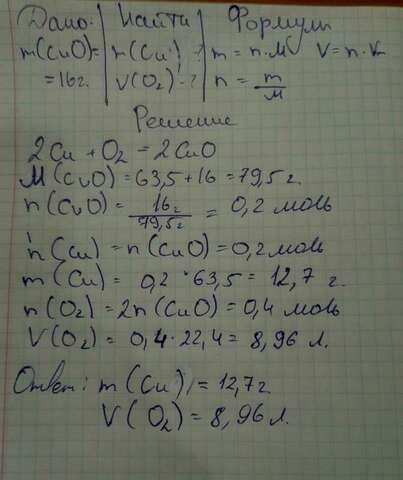 Дано: Найти Формулы
m(CuO)= m(Cu)-? m = n·M V=n·Vm
=16г. V(O₂)-? n = m/M
Решение
2Cu + O₂ = 2CuO
M(CuO)=63,5+16=79,5 г.
n(CuO)= 16г/79,5г = 0,2 моль
n(Cu)=n(CuO)=0,2моль
m(Cu)= 0,2·63,5= 12,7 г.
n(O₂)=2n(CuO)=0,4 моль
V(O₂)= 0,4·22,4= 8,96 л.
Ответ: m(Cu)=12,7г.
V(O₂)=8,96л.